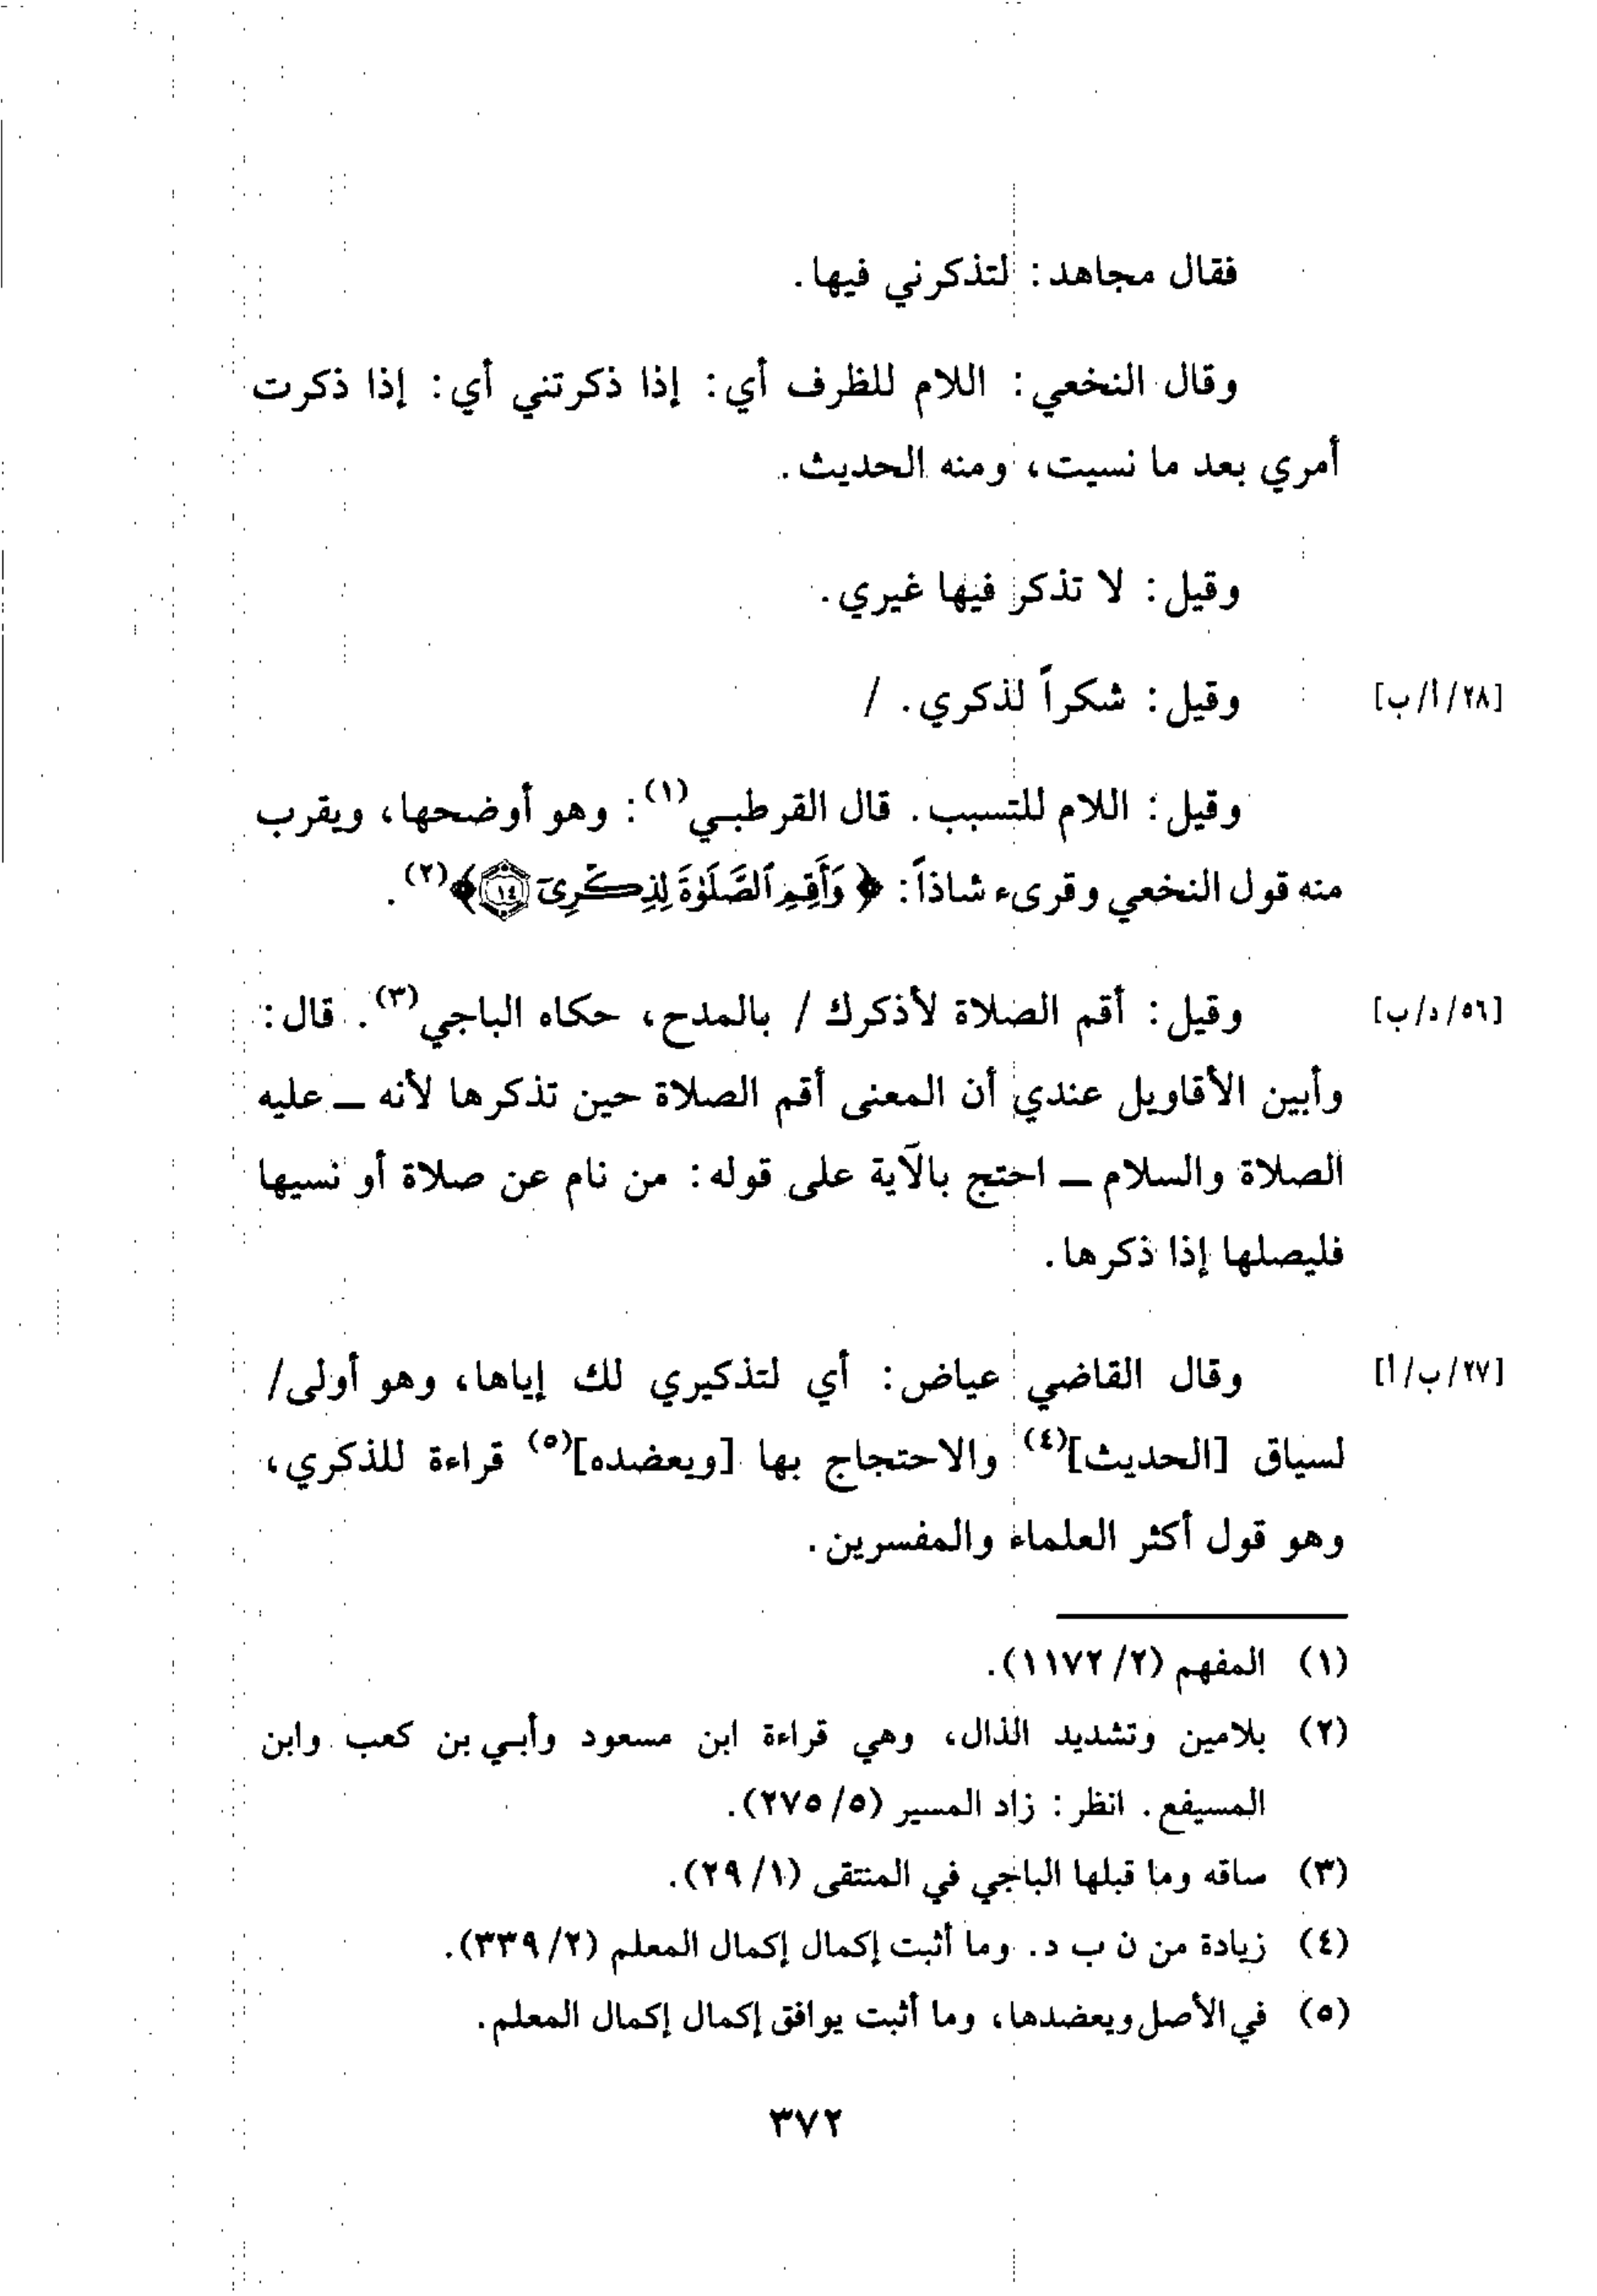 فقال مجاهد: لتذكرني فيها.
وقال النخعي: اللام للظرف أي: إذا ذكرتني أي: إذا ذكرت
أمري بعد ما نسيت، ومنه الحديث.
وقيل: لا تذكر فيها غيري.
[٢٨/أ/ب] وقيل: شكراً لذكري. /
وقيل: اللام للتسبب. قال القرطبي(١): وهو أوضحها، ويقرب
منه قول النخعي وقرىء شاذاً: ﴿وَأَقِمِ ٱلصَّلَوٰةَ لِذِكْرِىٓ ١٤﴾(٢).
[٥٦/د/ب] وقيل: أقم الصلاة لأذكرك / بالمدح، حكاه الباجي(٣). قال:
وأبين الأقاويل عندي أن المعنى أقم الصلاة حين تذكرها لأنه ــ عليه
الصلاة والسلام ــ احتج بالآية على قوله: من نام عن صلاة أو نسيها
فليصلها إذا ذكرها.
[٢٧/ب/أ] وقال القاضي عياض: أي لتذكيري لك إياها، وهو أولى/
لسياق [الحديث](٤) والاحتجاج بها [ويعضده](٥) قراءة للذكري،
وهو قول أكثر العلماء والمفسرين.
(١) المفهم (١١٧٢/٢).
(٢) بلامين وتشديد الذال، وهي قراءة ابن مسعود وأبي بن كعب وابن
المسيفع. انظر: زاد المسير (٢٧٥/٥).
(٣) ساقه وما قبلها الباجي في المنتقى (٢٩/١).
(٤) زيادة من ن ب د. وما أثبت إكمال إكمال المعلم (٣٣٩/٢).
(٥) في الأصل ويعضدها، وما أثبت يوافق إكمال إكمال المعلم.
٣٧٢